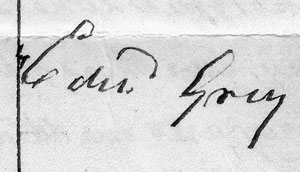 Edwd Grey